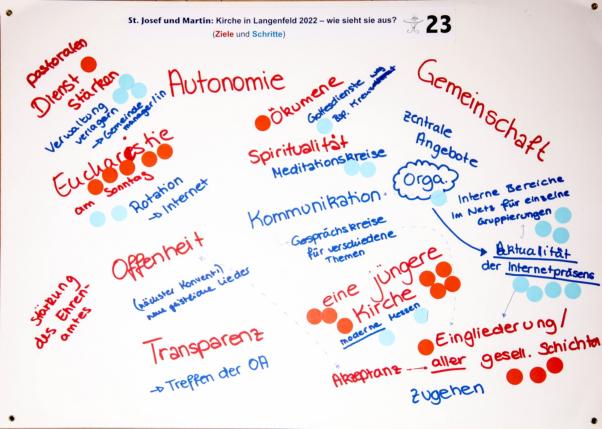 St. Josef und Martin: Kirche in Langenfeld 2022 – wie sieht sie aus?
(Ziele und Schritte)
23
pastoralen
Dienst
stärken
Verwaltung
verlagern
→ Gemeinde
manager/in
Autonomie
Ökumene
Gottesdienste
zsp.
Gemeinschaft
Eucharestie
am Sonntag
Rotation
→ Internet
Spiritualität
Meditationskreise
zentrale
Angebote
Orga.
Interne Bereiche
im Netz für einzelne
Gruppierungen
Kommunikation
Gesprächskreise
für verschiedene
Themen
Aktualität
der Internetpräsens
Offenheit
(nächster Konvent)
neue geistliche Lieder
Stärkung
des Ehren-
amtes
eine jüngere
Kirche
moderne Messen
Transparenz
→ Treffen der OA
Akzeptanz →
Eingliederung/
aller gesell. Schichten
zugehen